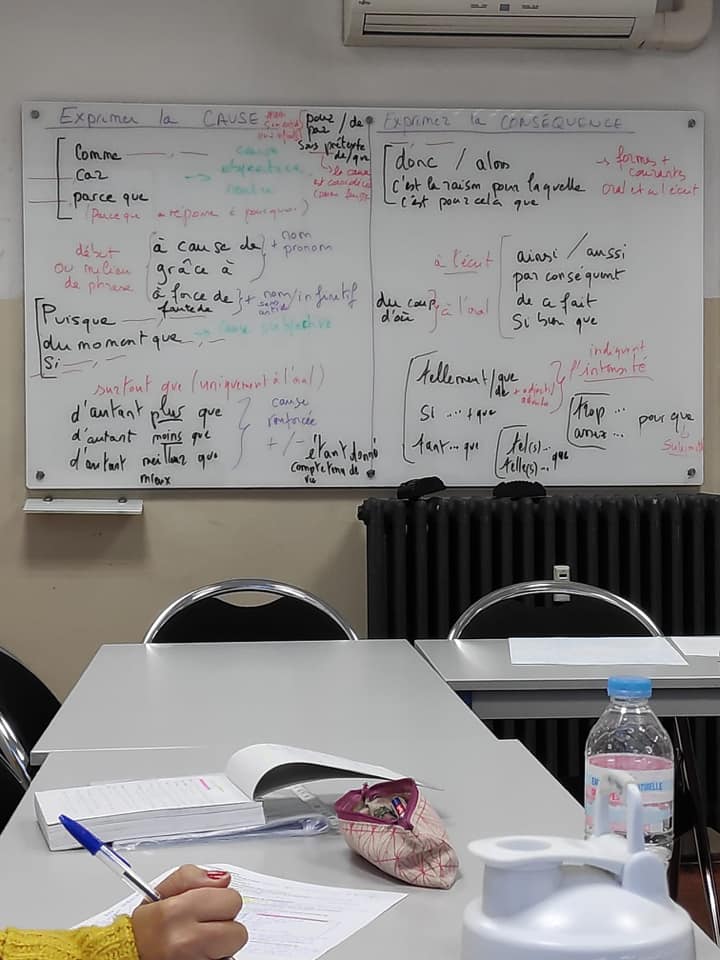 Exprimer la CAUSE
pour / de
par
sans prétexte
de/que
Comme
Car
parce que
cause
objective
neutre
(Parce que = réponse à pourquoi)
début
ou milieu
de phrase
à cause de
grâce à
+ nom
pronom
à force de
faute de
+ nom/infinitif
sans
article
Puisque
du moment que
Si
→ cause subjective
surtout que (uniquement à l'oral)
d'autant plus que
d'autant moins que
d'autant meilleur que
mieux
cause
renforcée
+ / -
étant donné
compte tenu de
vu
Exprimer la CONSÉQUENCE
donc / alors
c'est la raison pour laquelle
c'est pour cela que
→ formes +
courantes
oral et à l'écrit
à l'écrit
ainsi / aussi
par conséquent
de ce fait
Si bien que
du coup
d'où
à l'oral
indiquent
l'intensité
tellement/que
de
+ adjectif/
adverbe
Si .... + que
tant ... que
tel(s)...
telle(s)... que
trop ...
assez ...
pour que